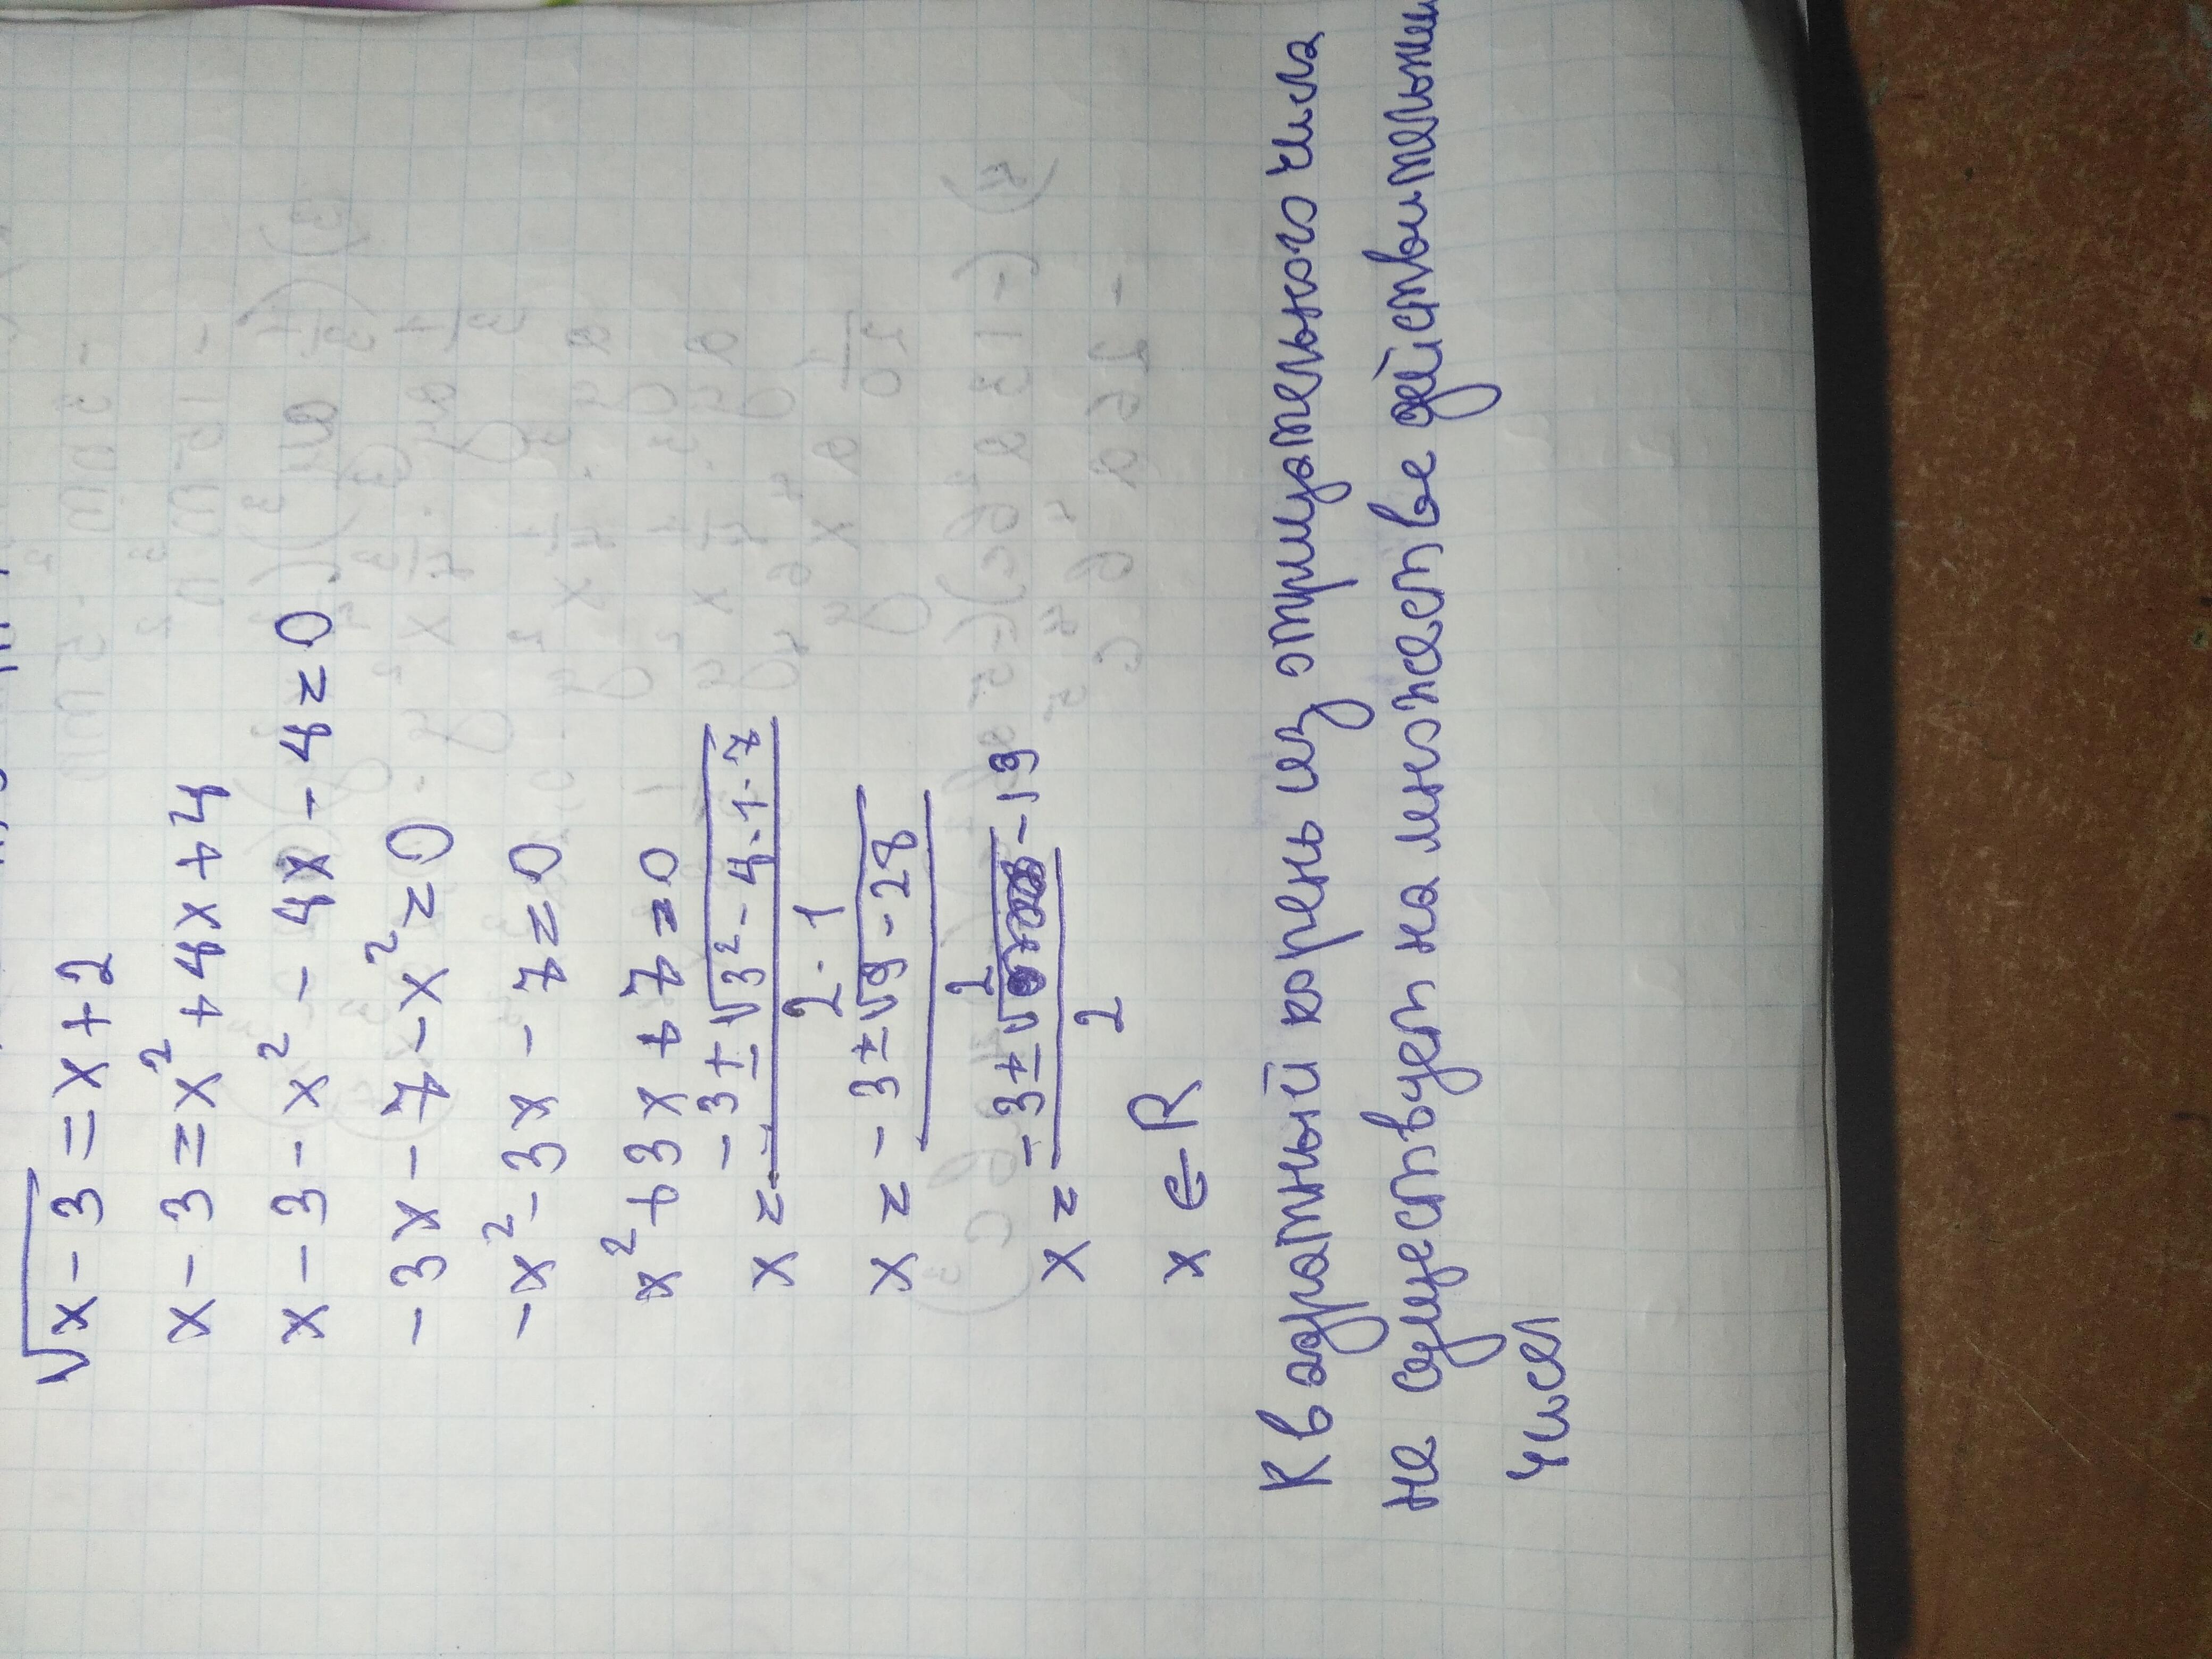 √x-3 = x+2
x-3 = x²+4x+4
x-3-x²-4x-4=0
-3x-7-x²=0
-x²-3x-7=0
x²+3x+7=0
x = -3±√3²-4·1·7
2·1
x = -3±√9-28
2
x = -3±√-19
2
x ∈ R
Квадратный корень из отрицательного числа
не существует на множестве действительных
чисел